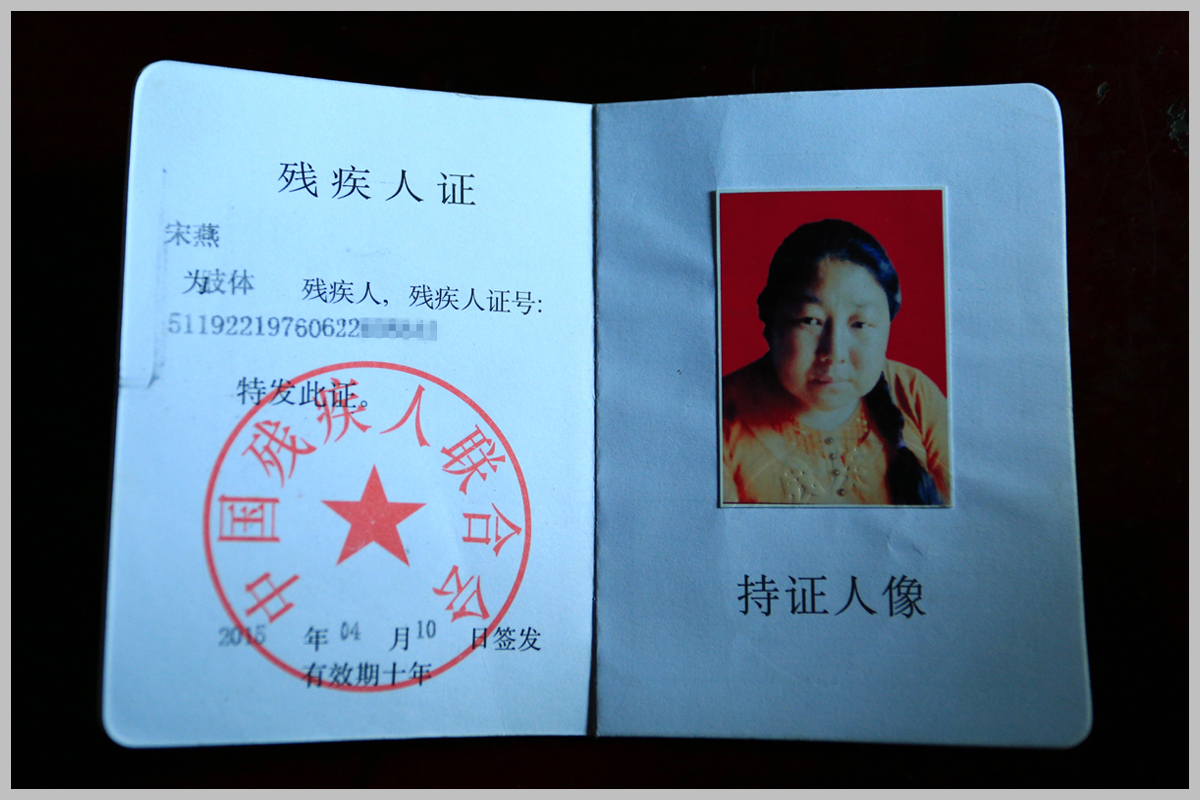 残疾人证
宋燕
为肢体 残疾人，残疾人证号:
51192219760622
特发此证。
中国残疾人联合会
2015 年 04 月 10 日签发
有效期十年
持证人像